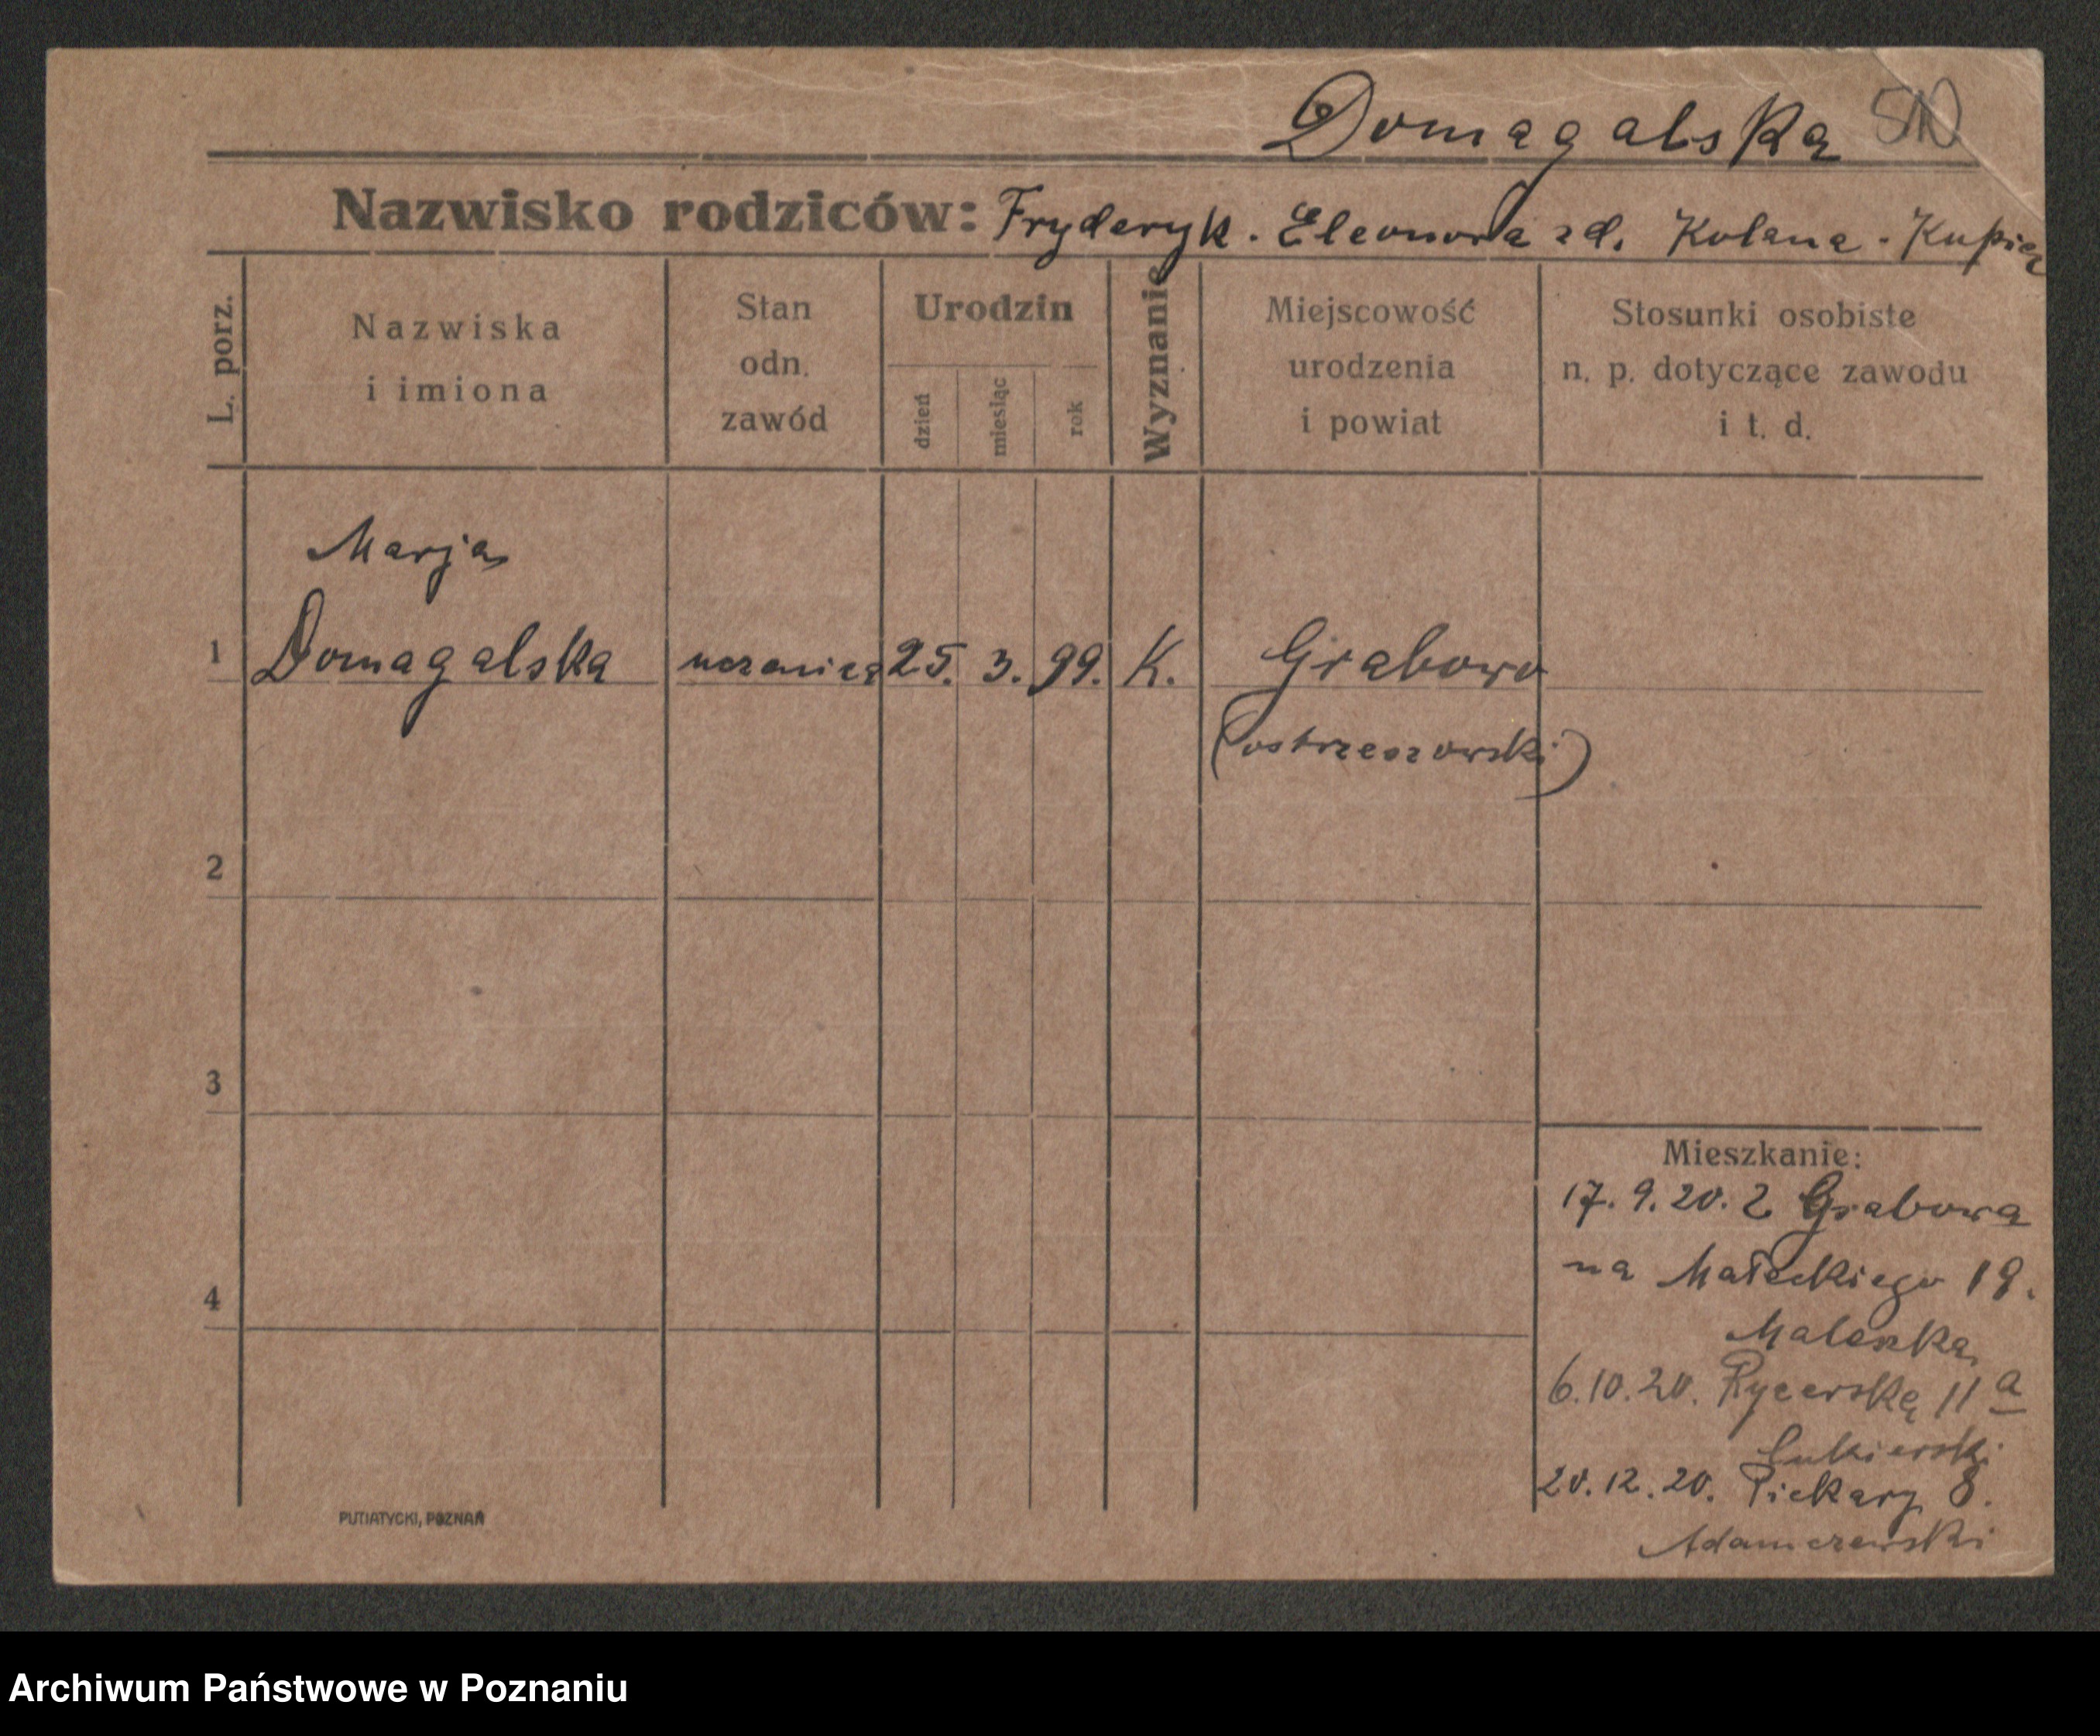 Domagalska
Nazwisko rodziców: Fryderyk. Eleonora zd. Kolana. Kupiec
L. porz.
Nazwiska
i imiona
Stan
odn.
zawód
Urodzin
dzień
miesiąc
rok
Wyznanie
Miejscowość
urodzenia
i powiat
Stosunki osobiste
n. p. dotyczące zawodu
i t. d.
Marja
1 Domagalska uczenica 25. 3. 99. K. Grabowo
(ostrzeszowski)
2
3
4
Mieszkanie:
17. 9. 20. z Grabowa
na Małeckiego 19.
Maleszka
6.10.20. Rycerska 11 a
Cukierski
20.12.20. Piekary 8.
Adamczewski
PUTIATYCKI, POZNAŃ
Archiwum Państwowe w Poznaniu